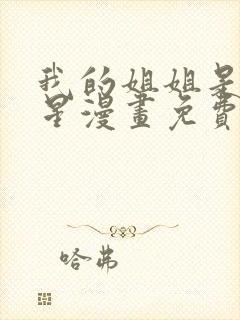 我的姐姐是
星漫畫免費
哈弗